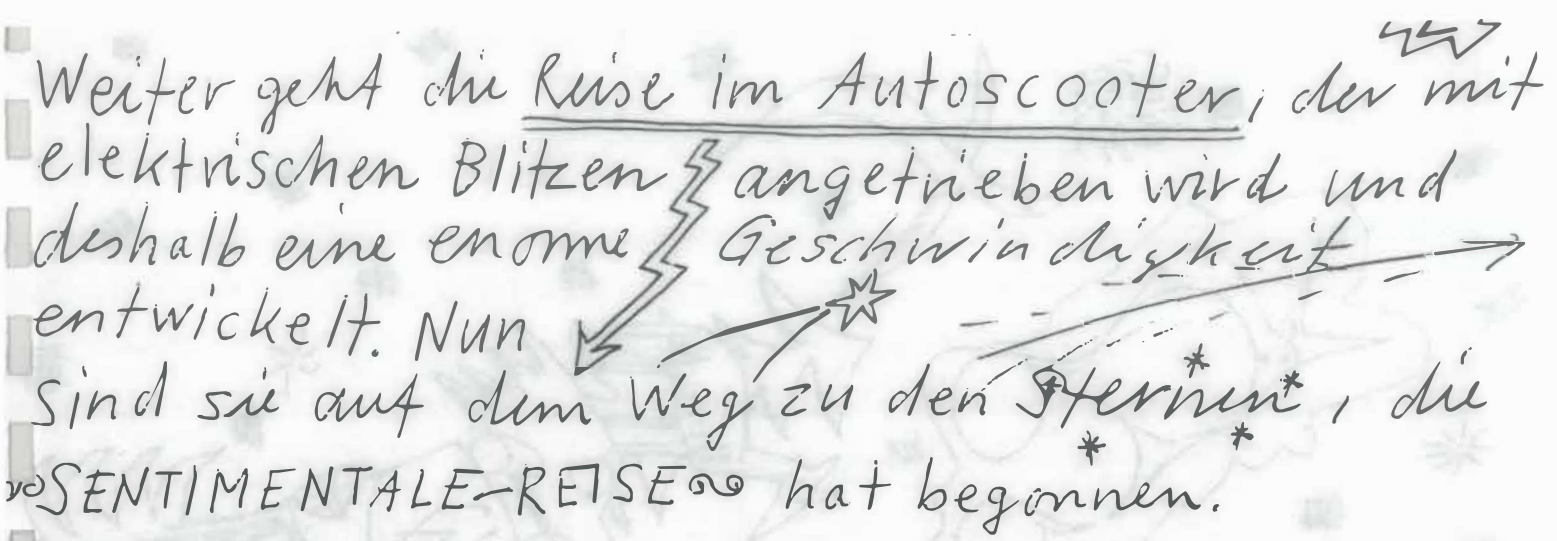 Weiter geht die Reise im Autoscooter, der mit
elektrischen Blitzen angetrieben wird und
deshalb eine enorme Geschwindigkeit
entwickelt. Nun
sind sie auf dem Weg zu den Sternen, die
SENTIMENTALE-REISE hat begonnen.